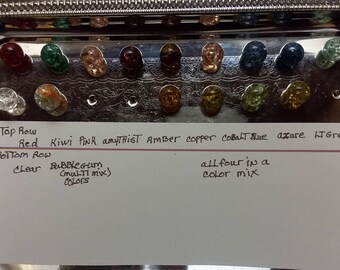 Top Row
Red Kiwi Pink amythist Amber copper cobalt Blue azure Lt Gre
Bottom Row
clear Bubblegum all four in a
(multi mix) color mix
colors